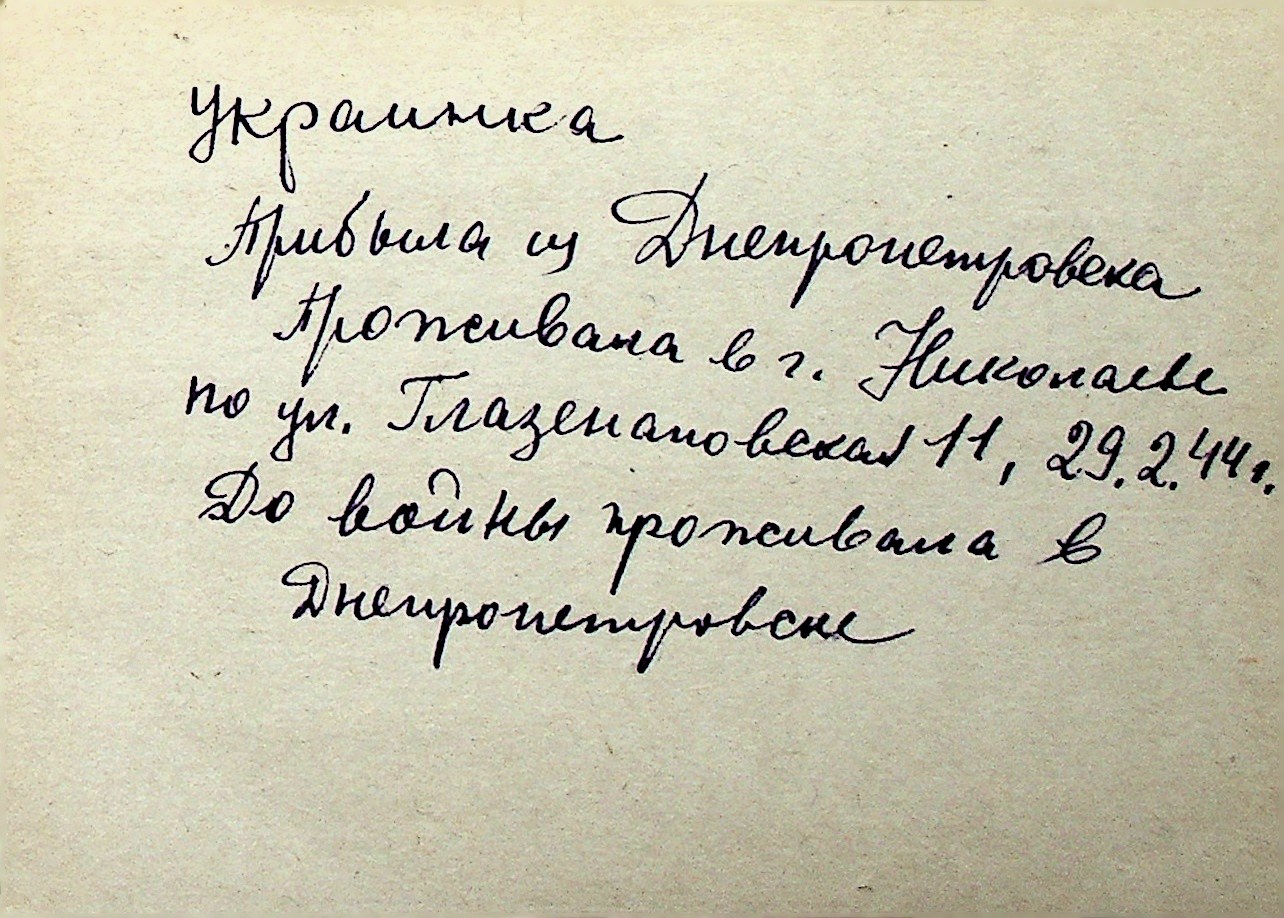 Украинка
Прибыла из Днепропетровска
Проживала в г. Николаеве
по ул. Глазенаповская 11, 29.2.44г.
До войны проживала в
Днепропетровске